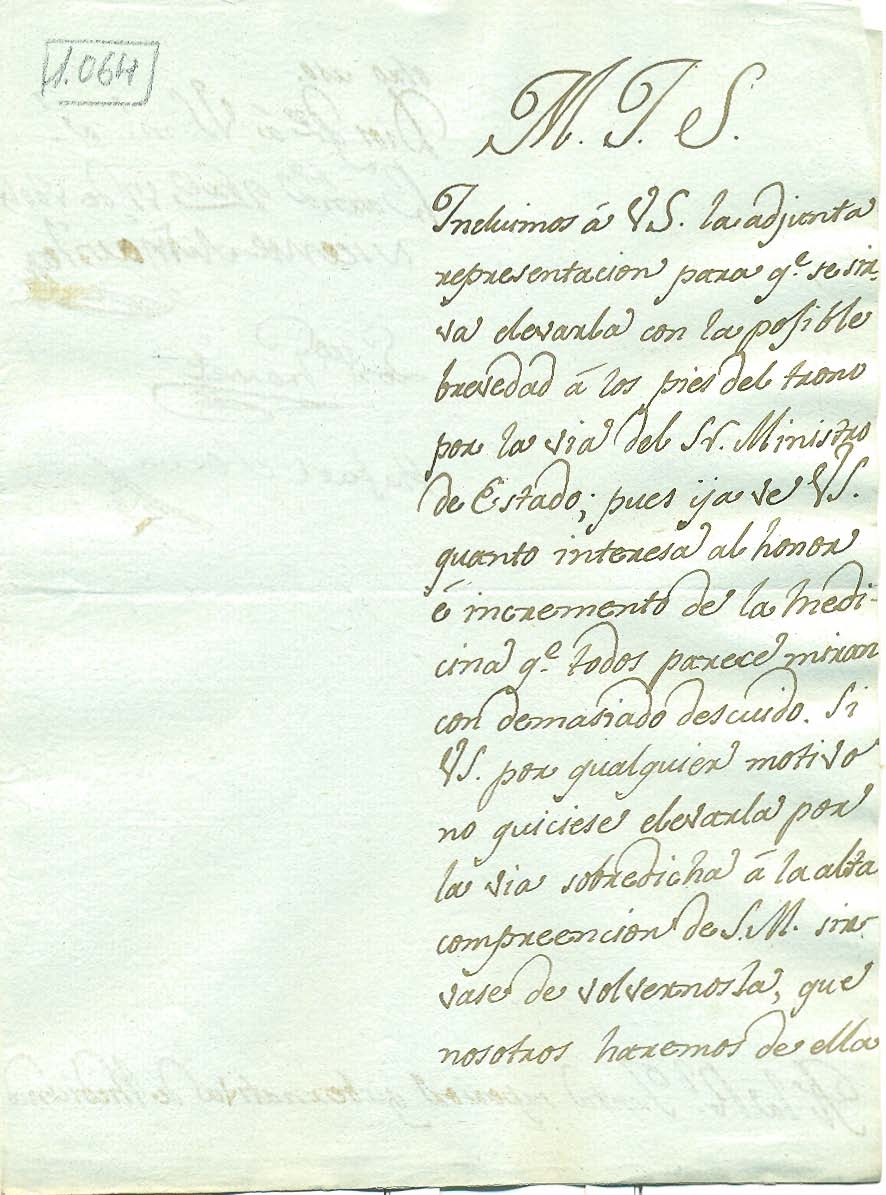 1.064
M. I. S.
Incluimos á VS. la adjunta
representacion para q.e se sir-
va elevarla con la posible
brevedad á los pies del trono
por la via del Sr. Ministro
de Estado; pues ya ve VS.
quanto interesa al honor
é incremento de la medi-
cina q.e todos parece miran
con demasiado descuido. Si
VS. por qualquier motivo
no quiciese elevarla por
la via sobredicha á la alta
compreencion de S.M. sir-
vase de volvernosla, que
nosotros haremos de ella